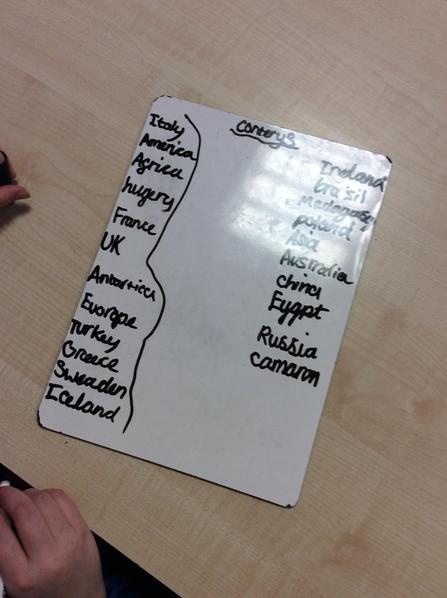 Contery's
Italy
America
Agrica
hugery
France
UK
Antarticci
Euorope
Turkey
Greece
Sweaden
Iceland
Ireland
brasil
Madagasgr
poland
Asia
Australia
china
Eygpt
Russia
camaron